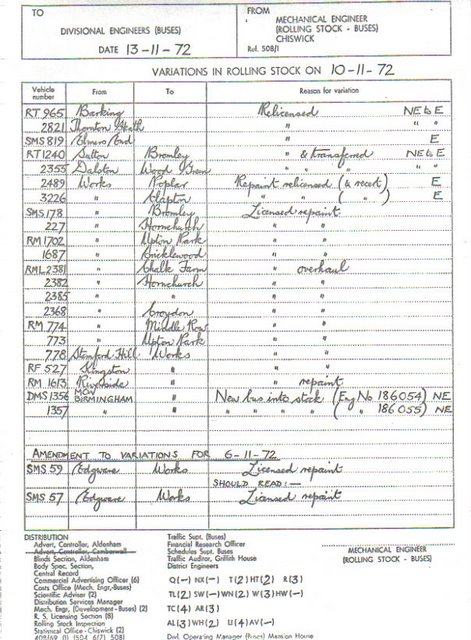 TO
DIVISIONAL ENGINEERS (BUSES)
DATE 13-11-72
FROM
MECHANICAL ENGINEER
(ROLLING STOCK - BUSES)
CHISWICK
Ref. 508/1
VARIATIONS IN ROLLING STOCK ON 10-11-72
Vehicle number From To Reason for variation
RT 965 Barking Relicensed NE to E
2821 Thornton Heath " " "
SMS 819 Elmers End " E
RT 1240 Sutton Bromley " & transferred NE to E
2355 Dalston Wood Green " " " "
2489 Works Poplar Repaint relicensed (& recert) E
3226 " Clapton " " ( " ) E
SMS 178 " Bromley Licensed repaint
227 " Hornchurch " "
RM 1702 " Upton Park " "
1687 " Cricklewood " "
RML 2381 " Chalk Farm " overhaul
2382 " Hornchurch " "
2385 " " " "
2368 " Croydon " "
RM 774 " Middle Row " "
773 " Upton Park " "
778 Stamford Hill Works " "
RF 527 Kingston " " "
RM 1613 Riverside " " repaint
DMS 1356 MCW BIRMINGHAM " New bus into stock (Eng No 186054) NE
1357 " " " " " " ( " 186055) NE
AMENDMENT TO VARIATIONS FOR 6-11-72
SMS 59 Edgware Works Licensed repaint
SHOULD READ:-
SMS 57 Edgware Works Licensed repaint
DISTRIBUTION
Advert, Controller, Aldenham
Advert, Controller, Camberwell
Blinds Section, Aldenham
Body Spec, Section,
Central Record
Commercial Advertising Officer (6)
Costs Office (Mech. Engr.-Buses)
Scientific Adviser (2)
Distribution Services Manager
Mech. Engr, (Development - Buses) (2)
R. S. Licensing Section (8)
Rolling Stock Inspection
Statistical Office - Chiswick (2)
Traffic Supt. (Buses)
Financial Research Officer
Schedules Supt. Buses
Traffic Auditor, Griffith House
District Engineers
Q(-) NX(-) T(2) HT(2) R(3)
TL(2) SW(-) WN(2) W(3) HW(-)
TC(4) AR(3)
AL(3) WH(2) U(4) AV(-)
Divl. Operating Manager (Buses) Mansion House
MECHANICAL ENGINEER
(ROLLING STOCK - BUSES)